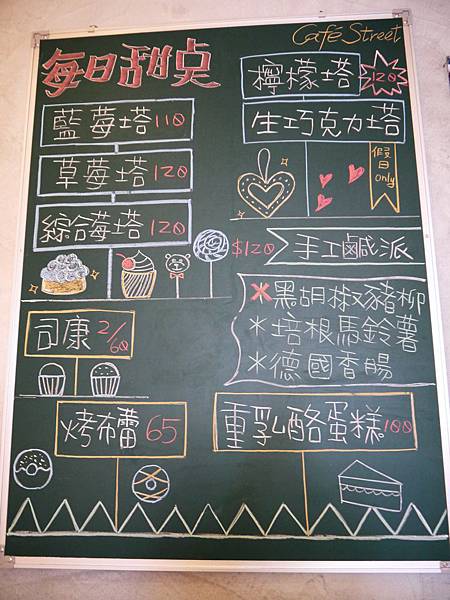 Café Street
每日甜点
藍莓塔 110
草莓塔 120
綜合莓塔 120
司康 2/60
烤布蕾 65
檸檬塔 120
生巧克力塔
假日only
$120 手工鹹派
×黑胡椒豬柳
*培根馬鈴薯
*德國香腸
重乳酪蛋糕 100